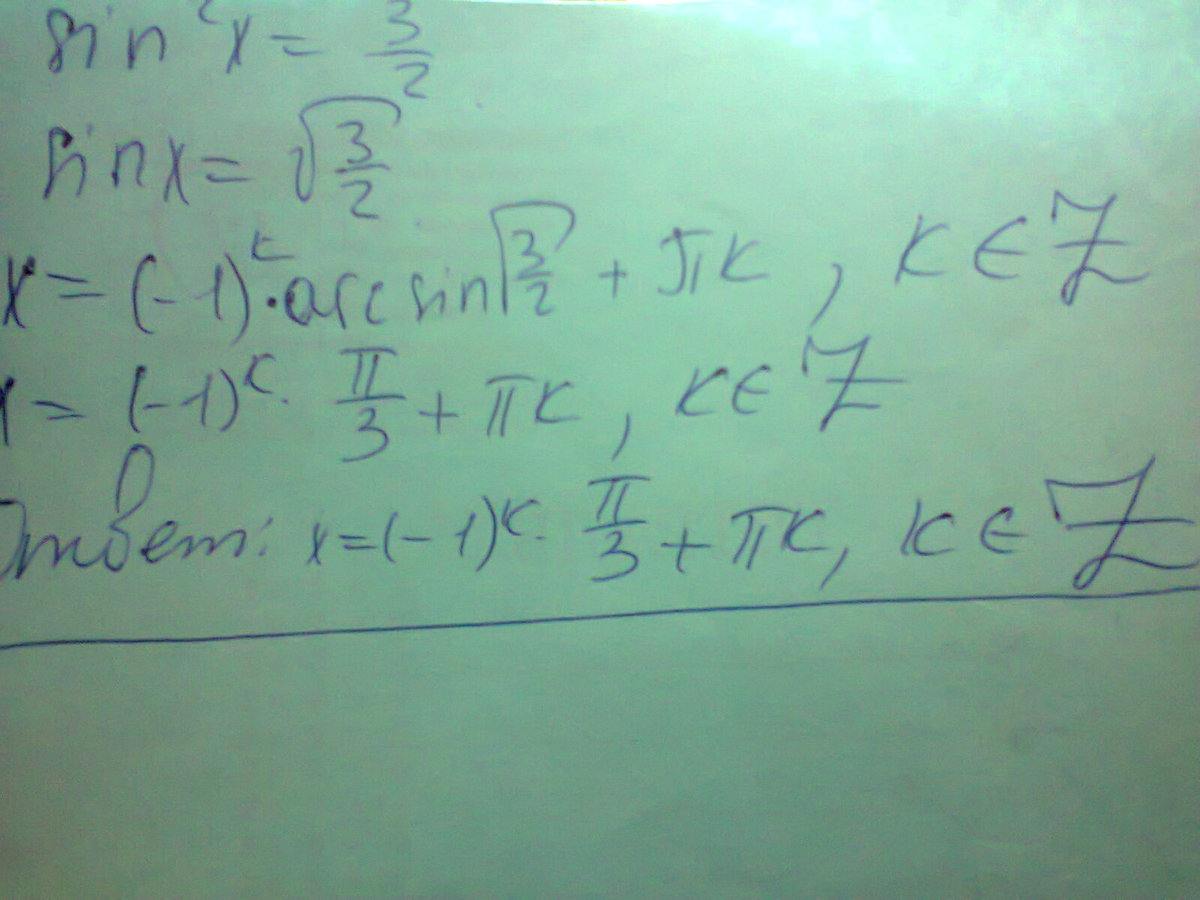 sin²x = 3/2
sinx = √(3/2)
x = (-1)ᴷ · arcsin√(3/2) + πK, K ∈ Z
x = (-1)ᴷ · π/3 + πK, K ∈ Z
Ответ: x = (-1)ᴷ · π/3 + πK, K ∈ Z